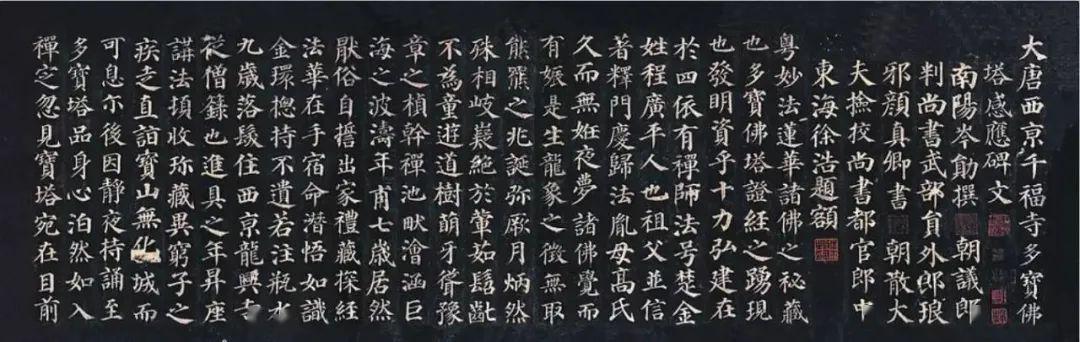 大唐西京千福寺多寶佛
塔感應碑文
南陽岑勛撰 朝議郎
判尚書武部員外郎琅
邪顏真卿書 朝散大
夫撿挍尚書都官郎中
東海徐浩題額
粵妙法蓮華諸佛之秘藏
也多寶佛塔證經之踴現
也發明資乎十力弘建在
於四依有禪師法号楚金
姓程廣平人也祖父並信
著釋門慶歸法胤母高氏
久而無妊夜夢諸佛覺而
有娠是生龍象之徵無取
熊羆之兆誕弥厥月炳然
殊相岐嶷絕於葷茹髫齔
不為童遊道樹萌牙聳豫
章之楨幹禪池畎澮涵巨
海之波濤年甫七歲居然
厭俗自誓出家禮藏探經
法華在手宿命潛悟如識
金環揔持不遺若注瓶水
九歲落髮住西京龍興寺
從僧籙也進具之年昇座
講法頃收珎藏異窮子之
疾走直詣寶山無化城而
可息尓後因靜夜持誦至
多寶塔品身心泊然如入
禪定忽見寶塔宛在目前